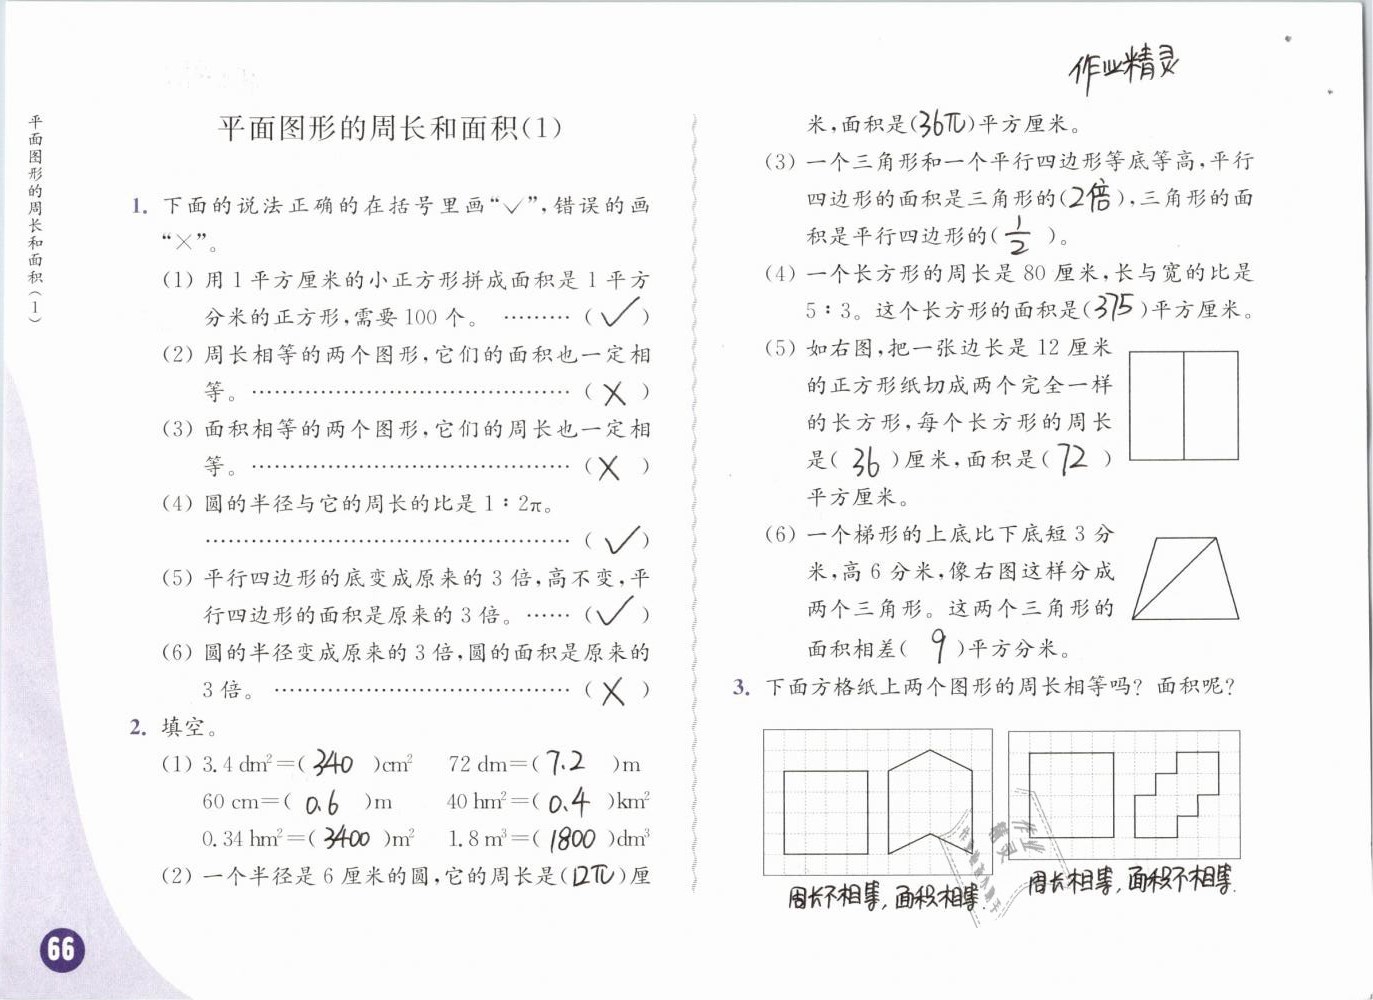 作业精灵
平面图形的周长和面积（1）
平面图形的周长和面积(1)
1. 下面的说法正确的在括号里画“✓”,错误的画
“×”。
(1) 用 1 平方厘米的小正方形拼成面积是 1 平方
分米的正方形,需要 100 个。 ……… ( ✓ )
(2) 周长相等的两个图形,它们的面积也一定相
等。…………………………………… ( × )
(3) 面积相等的两个图形,它们的周长也一定相
等。…………………………………… ( × )
(4) 圆的半径与它的周长的比是 1∶2π。
………………………………………… ( ✓ )
(5) 平行四边形的底变成原来的 3 倍,高不变,平
行四边形的面积是原来的 3 倍。…… ( ✓ )
(6) 圆的半径变成原来的 3 倍,圆的面积是原来的
3 倍。 ………………………………… ( × )
2. 填空。
(1) 3.4 dm²=( 340 )cm² 72 dm=( 7.2 )m
60 cm=( 0.6 )m 40 hm²=( 0.4 )km²
0.34 hm²=( 3400 )m² 1.8 m³=( 1800 )dm³
(2) 一个半径是 6 厘米的圆,它的周长是(12π)厘
米,面积是(36π)平方厘米。
(3) 一个三角形和一个平行四边形等底等高,平行
四边形的面积是三角形的(2倍),三角形的面
积是平行四边形的( 1/2 )。
(4) 一个长方形的周长是 80 厘米,长与宽的比是
5∶3。这个长方形的面积是(375)平方厘米。
(5) 如右图,把一张边长是 12 厘米
的正方形纸切成两个完全一样
的长方形,每个长方形的周长
是( 36 )厘米,面积是( 72 )
平方厘米。
(6) 一个梯形的上底比下底短 3 分
米,高 6 分米,像右图这样分成
两个三角形。这两个三角形的
面积相差( 9 )平方分米。
3. 下面方格纸上两个图形的周长相等吗？面积呢？
周长不相等,面积相等.
周长相等,面积不相等.
作业
精灵
66